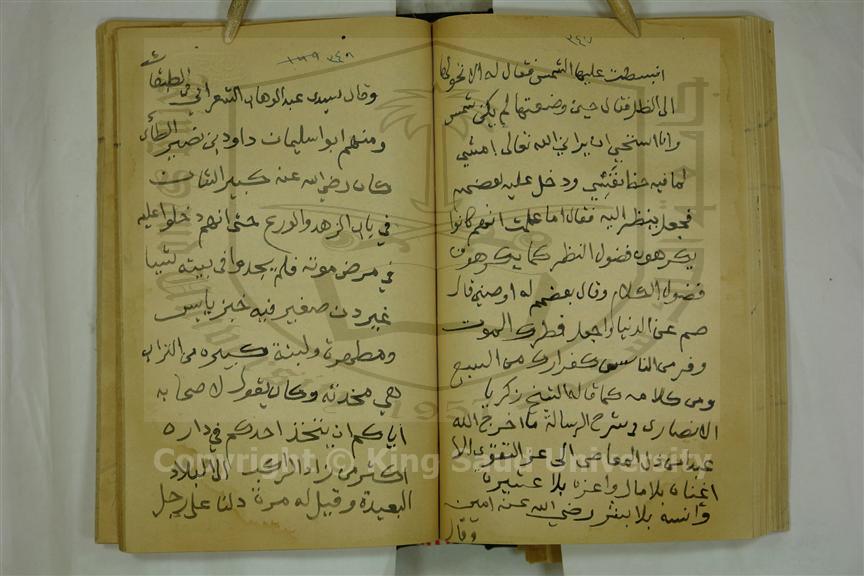 ٣٤٧
انبسطت عليها الشمس فقال له الا نحولها
الى الظل فقال حين وضعتها لم يكن شمس
وانا استحي ان يراني الله تعالى امشي
لما فيه حظ نفسي ودخل عليه بعضهم
فجعل ينظر اليه فقال اما علمت انهم كانوا
يكرهون فضول النظر كما يكرهون
فضول الكلام وقال بعضهم له اوصني قال
صم عن الدنيا واجعل فطرك الموت
وفر من الناس كفرارك من السبع
ومن كلامه كما قاله الشيخ زكريا
الانصاري في شرح الرسالة ما اخرج الله
عبدا من ذل المعاصي الى عز التقوى الا
اغناه بلا مال واعزه بلا عشيرة
وآنسه بلا بشر رضي الله عنه امين
وقال
٣٤٨
وقال سيدي عبد الوهاب الشعراني في الطبقات
ومنهم ابو سليمان داود بن نصير الطائي
كان رضي الله عنه كبير الشان
في باب الزهد والورع حتى انهم دخلوا عليه
في مرض موته فلم يجدوا في بيته شيا
غير دن صغير فيه خبز يابس
ومطهرة ولبنة كبيرة من التراب
هي مخدته وكان يقول لاصحابه
اياكم ان يتخذ احدكم في داره
اكثر من زاد الراكب الى البلاد
البعيدة وقيل له مرة دلنا على رجل
Copyright © King Saud University
1957